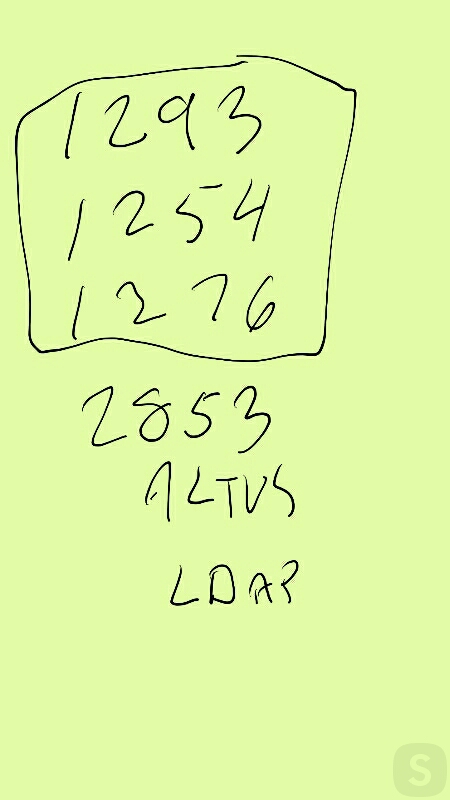 1293
1254
1276
2853
ALTUS
LDAP
S